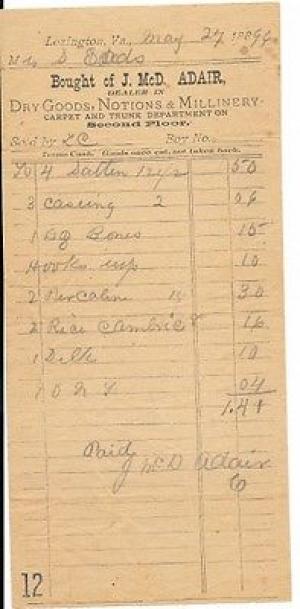 Lexington, Va., May 27 1889 96
Mrs S
Bought of J. McD. ADAIR,
DEALER IN
DRY GOODS, NOTIONS & MILLINERY.
CARPET AND TRUNK DEPARTMENT ON
Second Floor.
Sold by LC Boy No.
Terms Cash. Goods once cut, not taken back.
To 4 Satten 12½ 50
3 Casing 2 06
1 Bones 15
Hooks 10
2 Percaline 15 30
2 Rice Cambric 8 16
1 Silk 10
04
1.41
Paid
J McD Adair
12